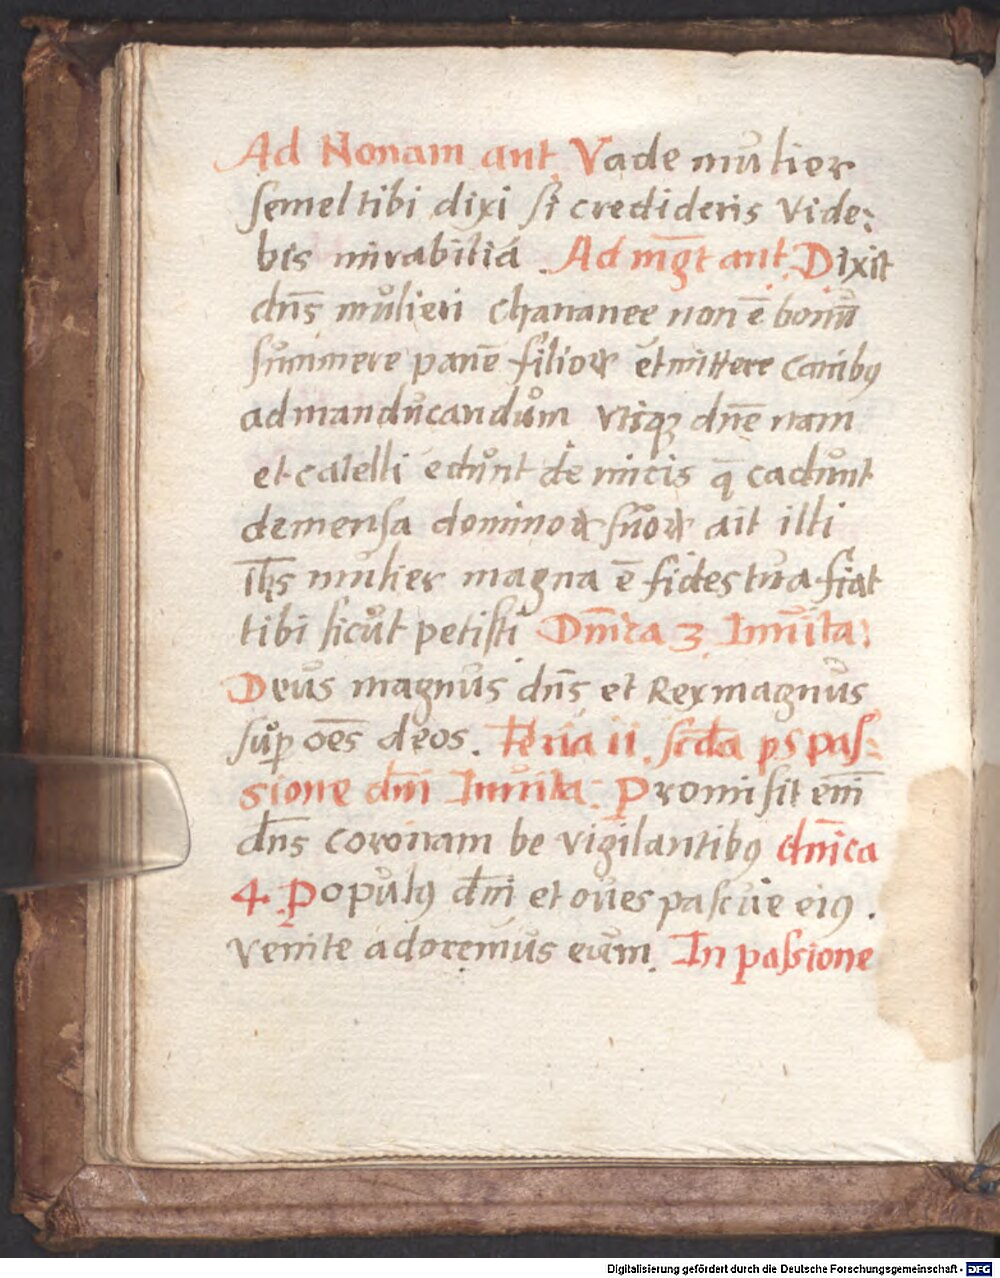 Ad Nonam ant. Vade mulier
semel tibi dixi si credideris vide:
bis mirabilia . Ad mḡt ant. Dixit
dn̄s mulieri chananee non ē bonū
summere panē filioꝝ et mittere canibꝯ
admanducandum vtiqꝫ dn̄e nam
et catelli edunt de micis q̄ cadunt
demensa dominoꝝ suoꝝ ait illi
ih̄s mulier magna ē fides tua fiat
tibi sicut petisti Dn̄ica 3 Inuita:
Deus magnus dn̄s et Rex magnus
sup̱ oēs deos. Feria ii. scd̄a ps pas:
sione dn̄i Inuita: Promisit em̄
dn̄s coronam be vigilantibꝯ dn̄ica
4. Populꝯ dn̄i et oues pascue eiꝯ .
venite adoremus eum. In passione
Digitalisierung gefördert durch die Deutsche Forschungsgemeinschaft - DFG